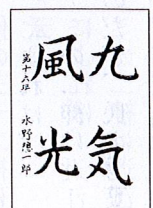 九気
風光
第十六班
水野 一郎